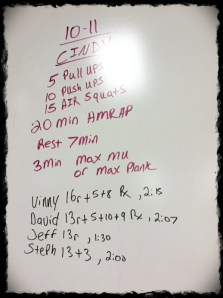 10-11
CINDY
5 Pull UPS
10 Push UPS
15 AIR Squats
20 min AMRAP
Rest 7min
3min max mu
or max Plank
Vinny 16r+5+8 Rx, 2:15
David 13r+5+10+9 Rx, 2:07
Jeff 13r, 1:30
Steph 13+3, 2:00